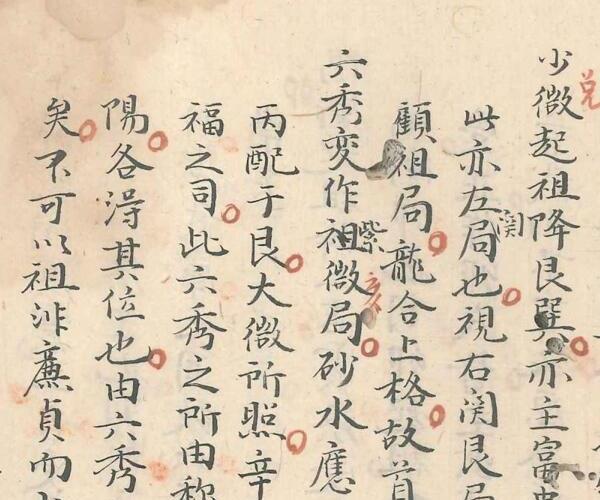 少微起祖降艮巽亦主富
此亦左局也視右関艮局
顧祖局龍合上格故首
六秀变作祖微局砂水應
丙配于艮大微所照辛
福之司此六秀之所由称
陽各得其位也由六秀
矣不可以祖非廉貞而
兑
関
紫
亥